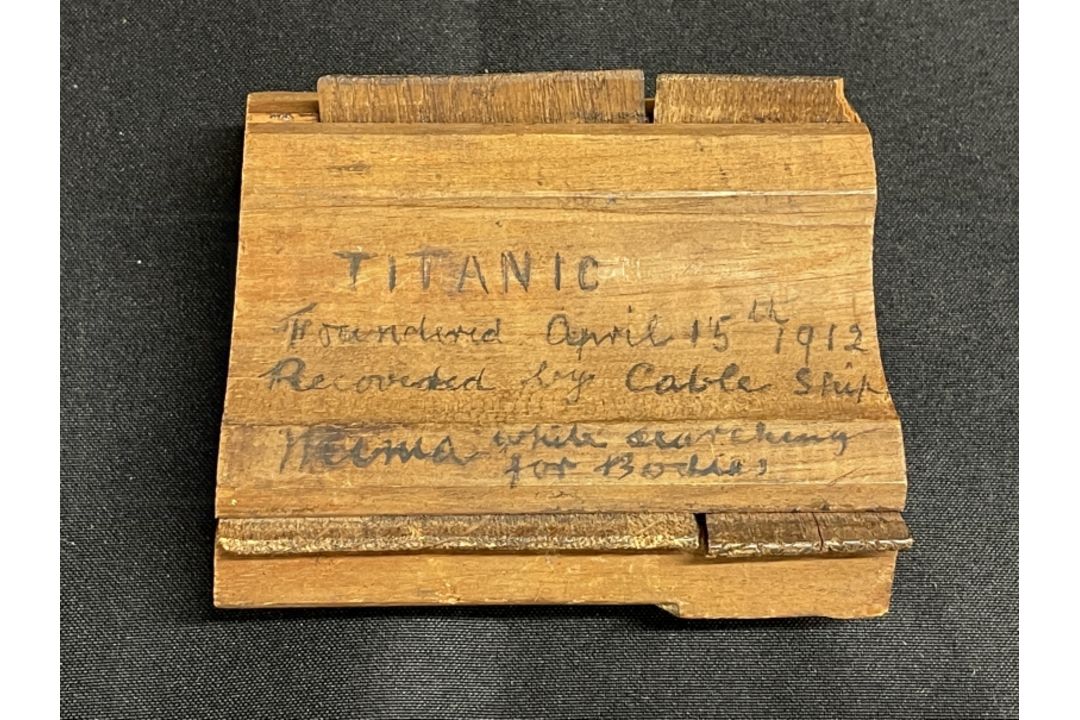 TITANIC
Foundered April 15th 1912
Recovered by Cable Ship
Minia while searching
for Bodies